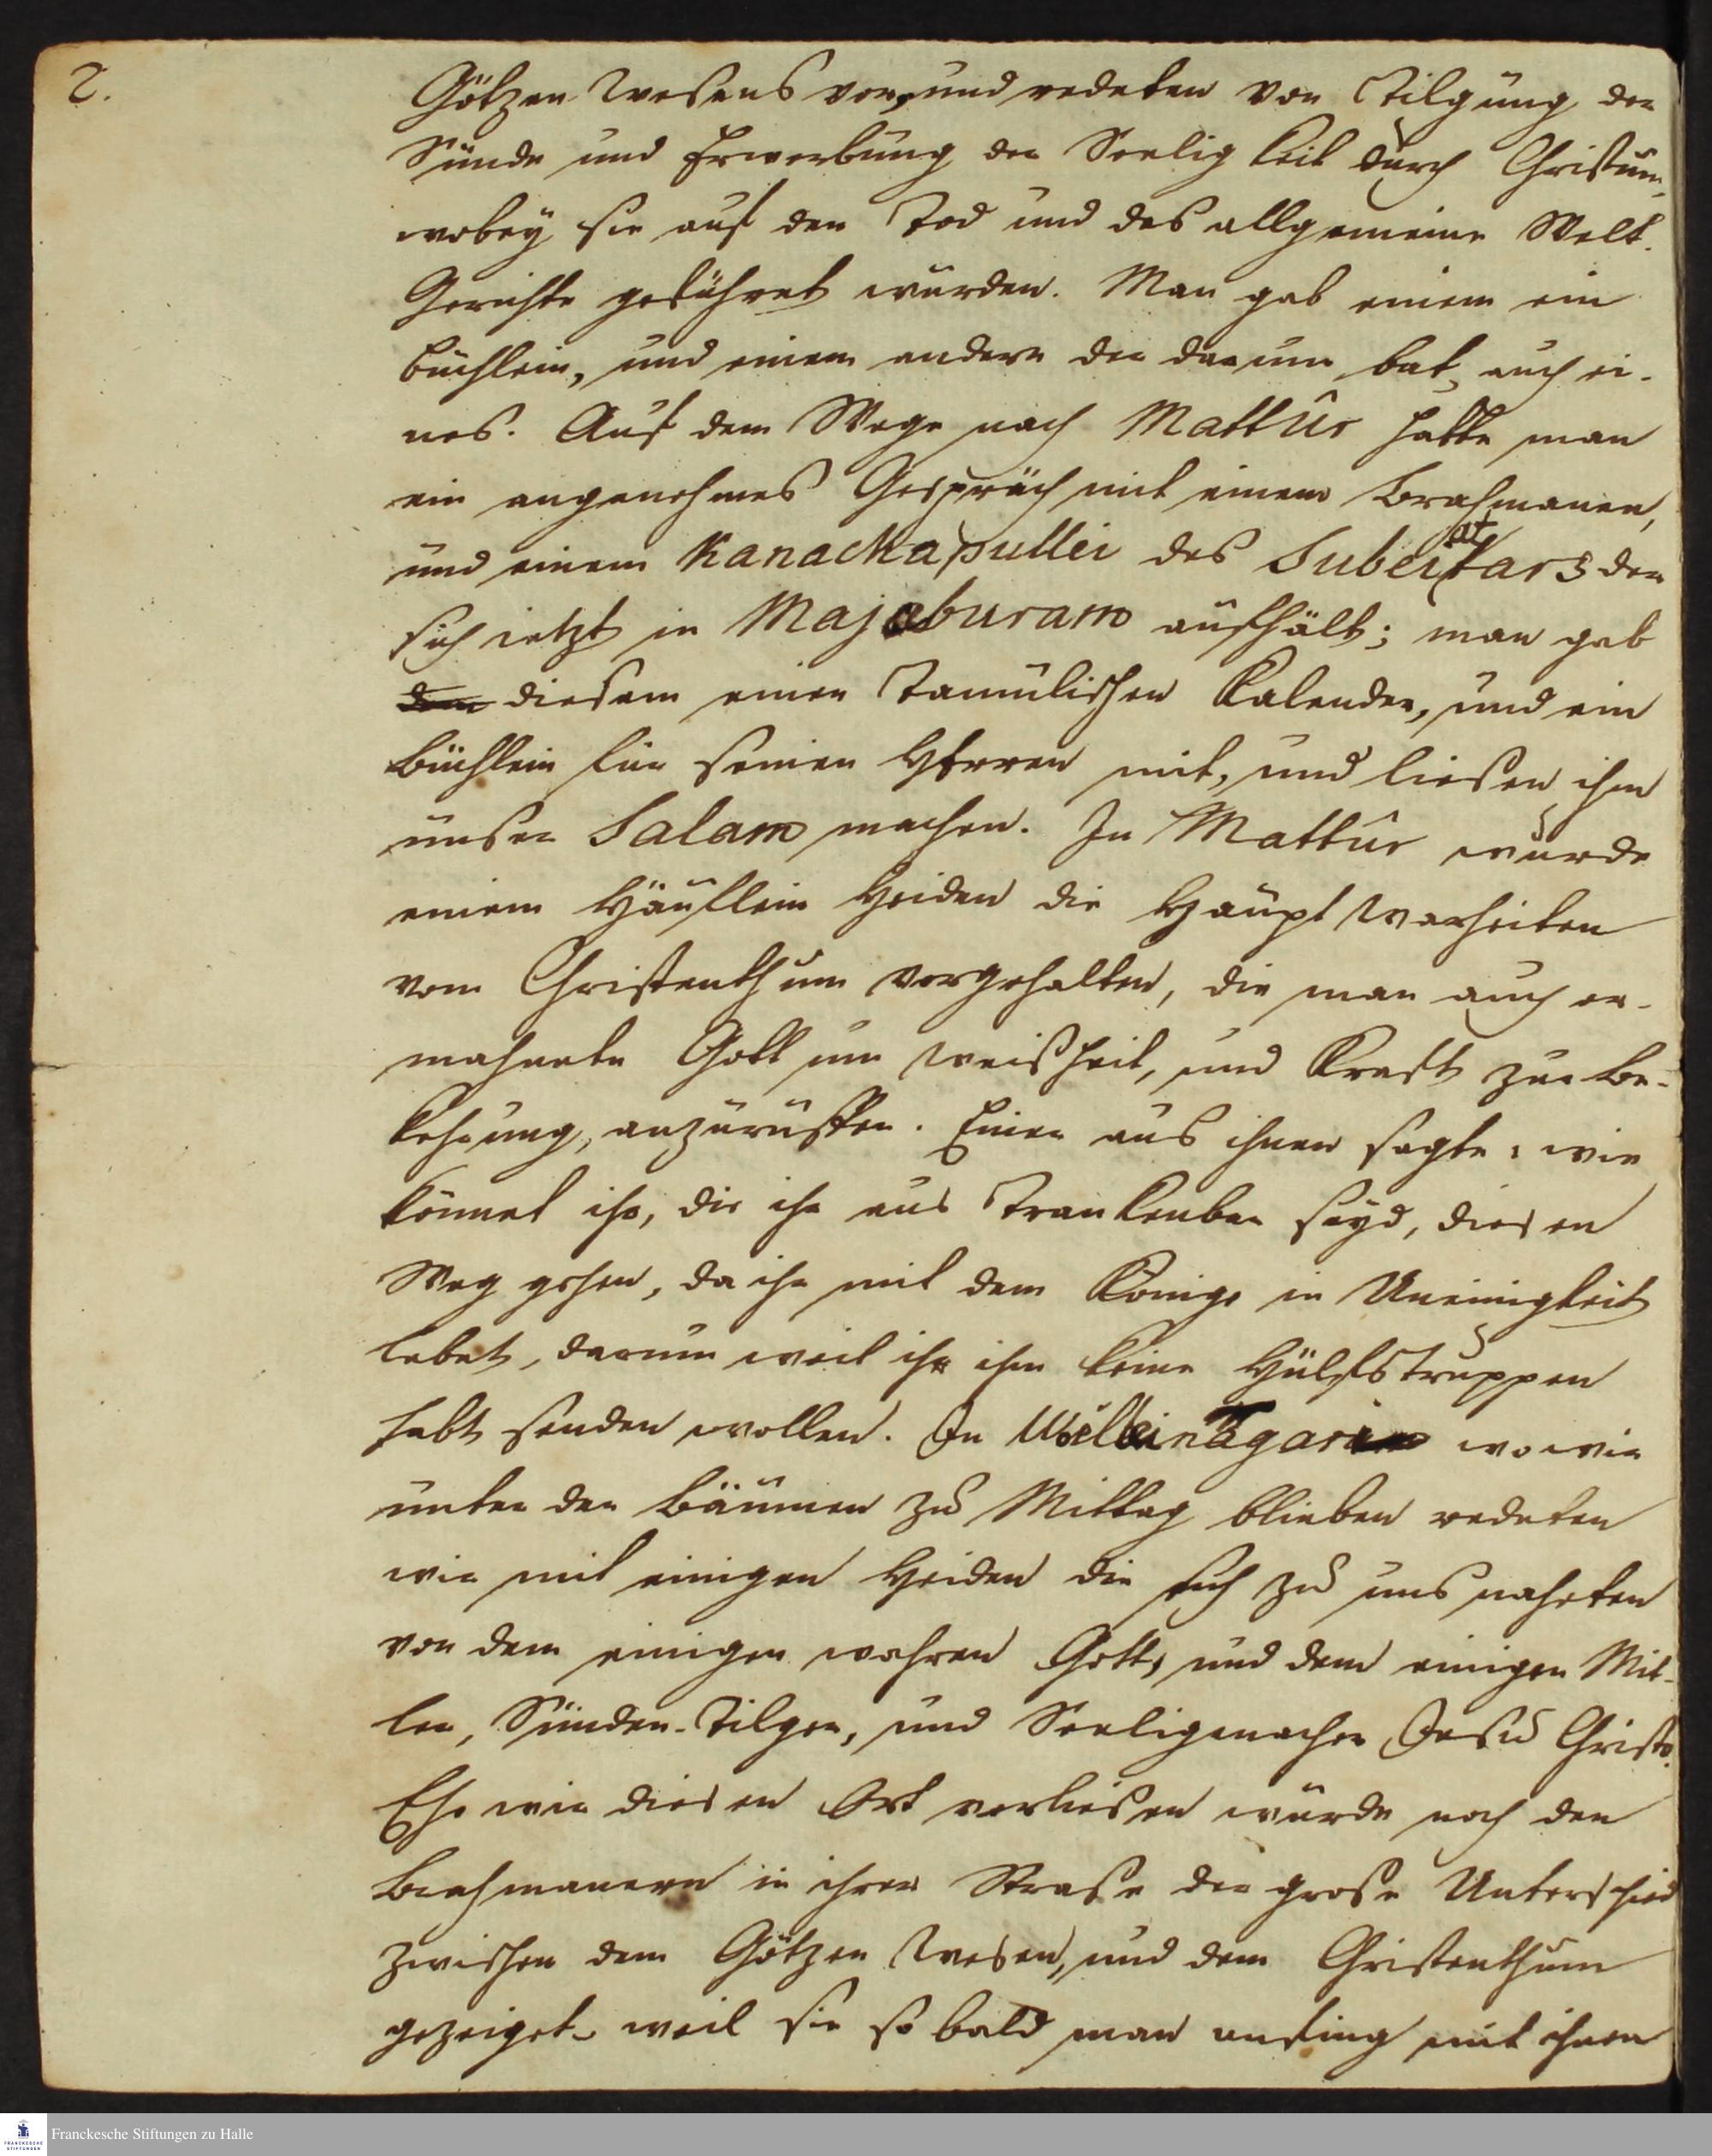 2.
Götzen Wesens vor, und redeten von Tilgung der
Sünde und Erwerbung der Seeligkeit durch Christum,
wobey sie auf den Tod und das allgemeine Welt-
Gerichte geführet wurden. Man gab einem ein
Büchlein, und einem andern der darum bat, auch ei-
nes. Auf dem Wege nach Mattûr hatte man
ein angenehmes Gespräch mit einem Brahmanen,
und einem Kanackapullei des Subei
sich ietzt in Majaburam aufhält; man gab
dem diesem einen Tamulischen Kalender, und ein
Büchlein für seinen Herren mit, und liesen ihm
unser Salam machen. In Mattûr wurde
einem Häuflein Heiden die Haupt Warheiten
vom Christenthum vorgehalten, die man auch er-
mahnete Gott um Weisheit, und Kraft zur Be-
kehrung, anzuruffen. Einer aus ihnen sagte: wie
könnet ihr, die ihr aus Trankenbar seyd, diesen
Weg gehen, da ihr mit dem Könige in Uneinigkeit
lebet, darum weil ihr ihm keine Hülfstruppen
habt senden wollen. In wo wir
unter den Bäumen zu Mittag blieben redeten
wir mit einigen Heiden die sich zu uns naheten
von dem einigen wahren Gott, und dem einigen Mit-
ler, Sünden-Tilger, und Seeligmacher Jesu Christo.
Ehe wir diesen Ort verliesen wurde noch den
Brahmanern in ihrer Strase der grose Unterschied
zwischen dem Götzen Wesen, und dem Christenthum
gezeiget, weil sie so bald man anfing mit ihnen
Franckesche Stiftungen zu Halle